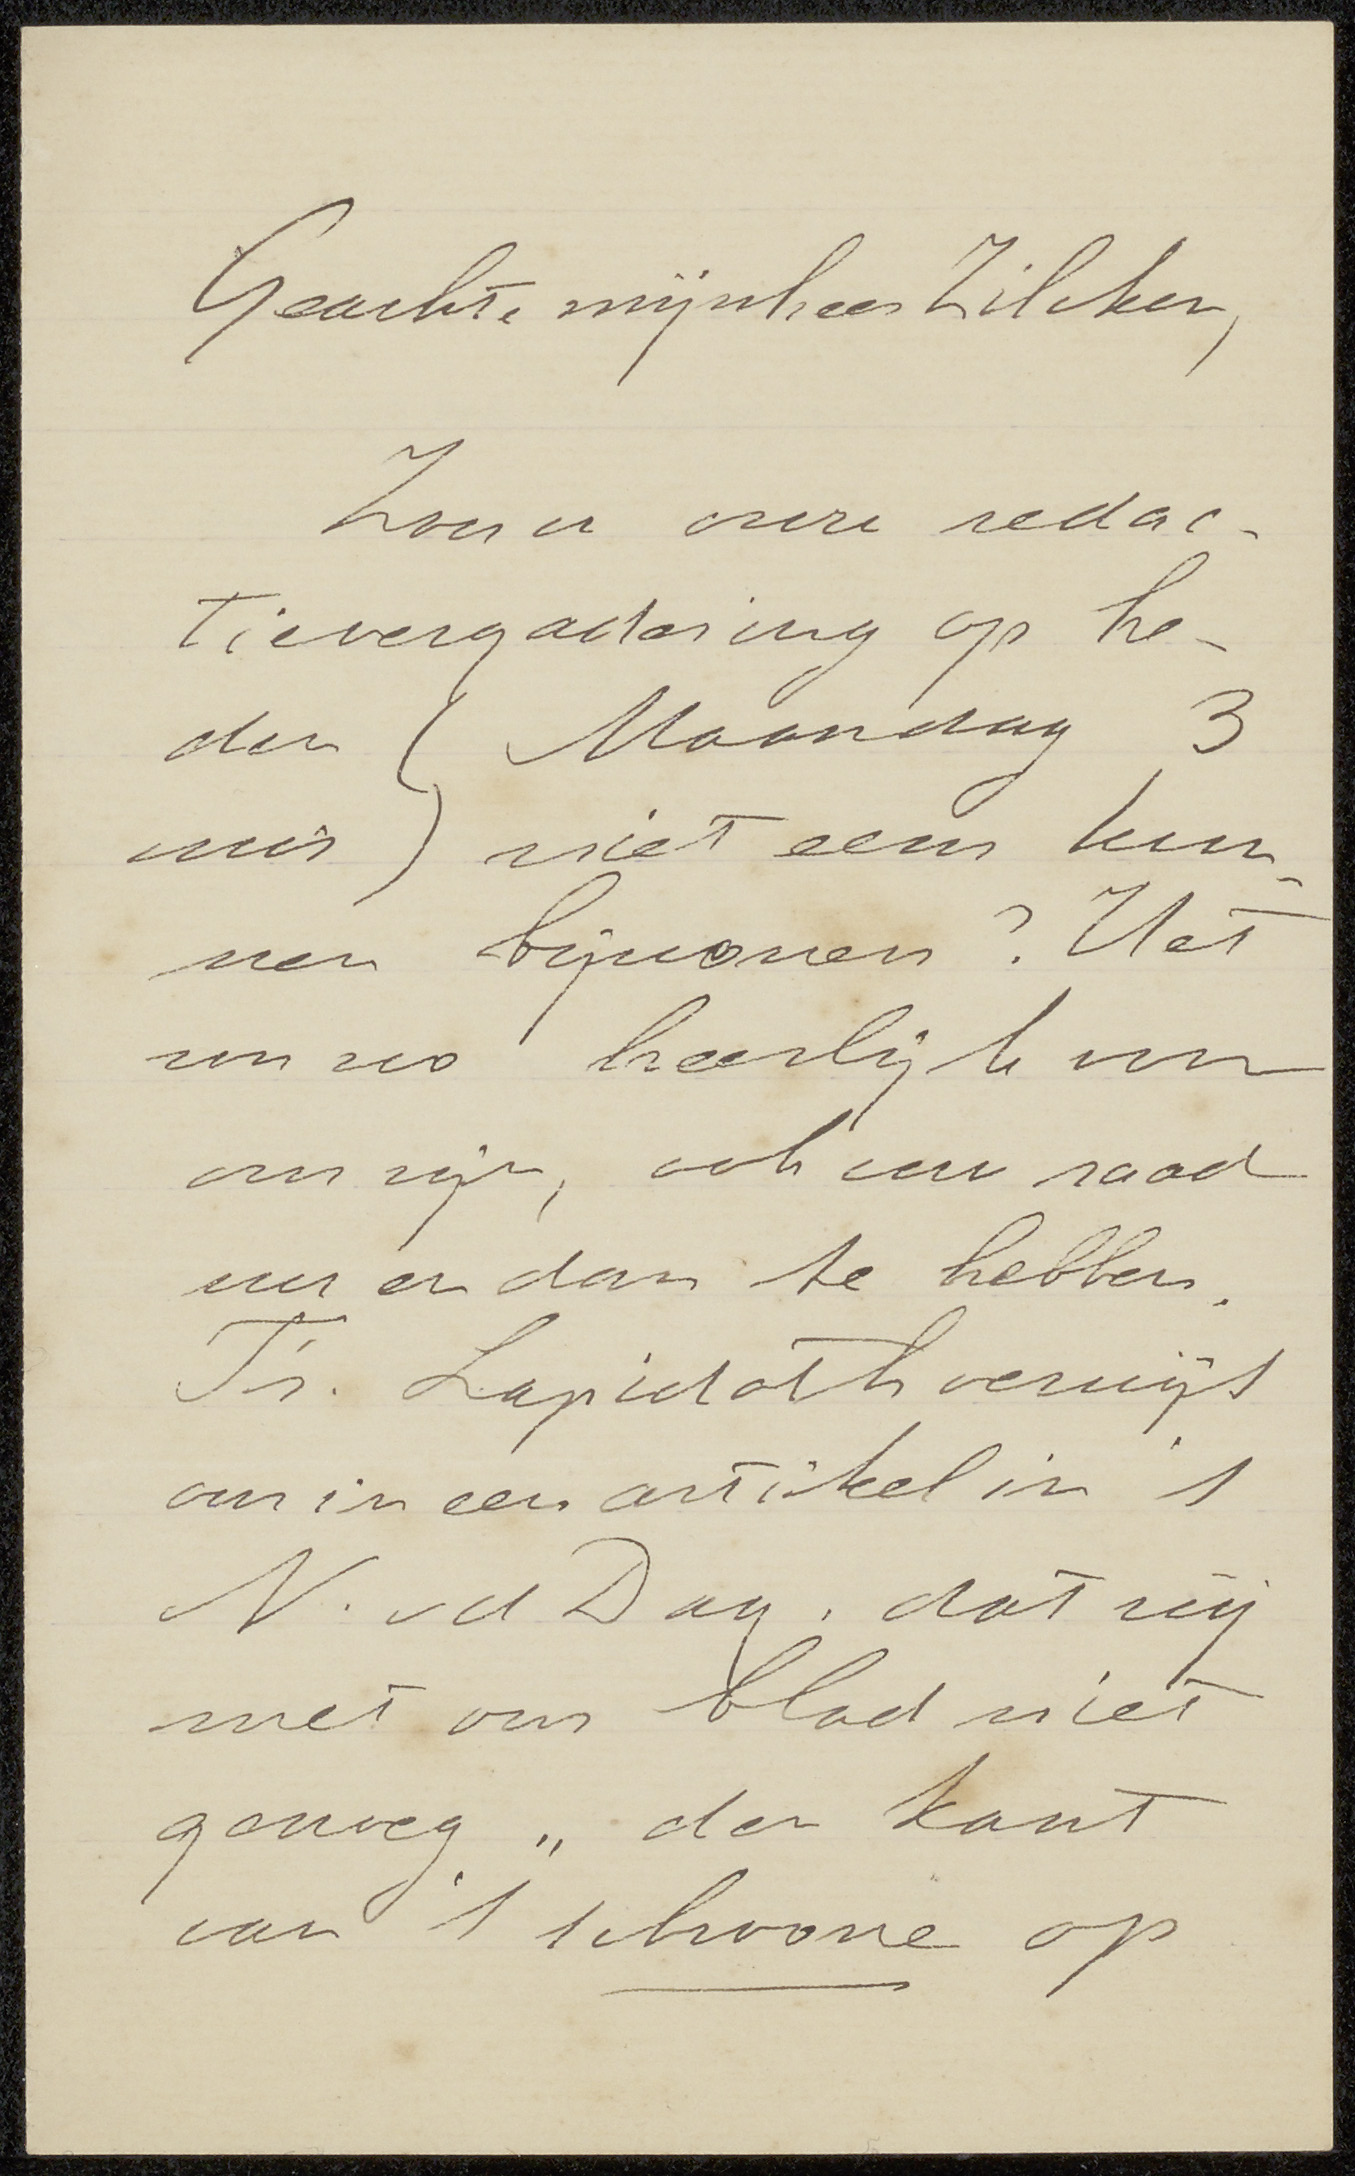 Geachte mijnheer Zilcken,
Zou u onze redac-
tievergadering op he-
den (Maandag 3
uur) niet eens kun-
nen bijwonen? Het
zou zoo heerlijk voor
ons zijn, ook uw raad
nu en dan te hebben.
Fr. Lapidoth verwijt
ons in een artikel in 't
N. v d Dag. dat wij
met ons blad niet
genoeg „ den kant
van 't schoone op